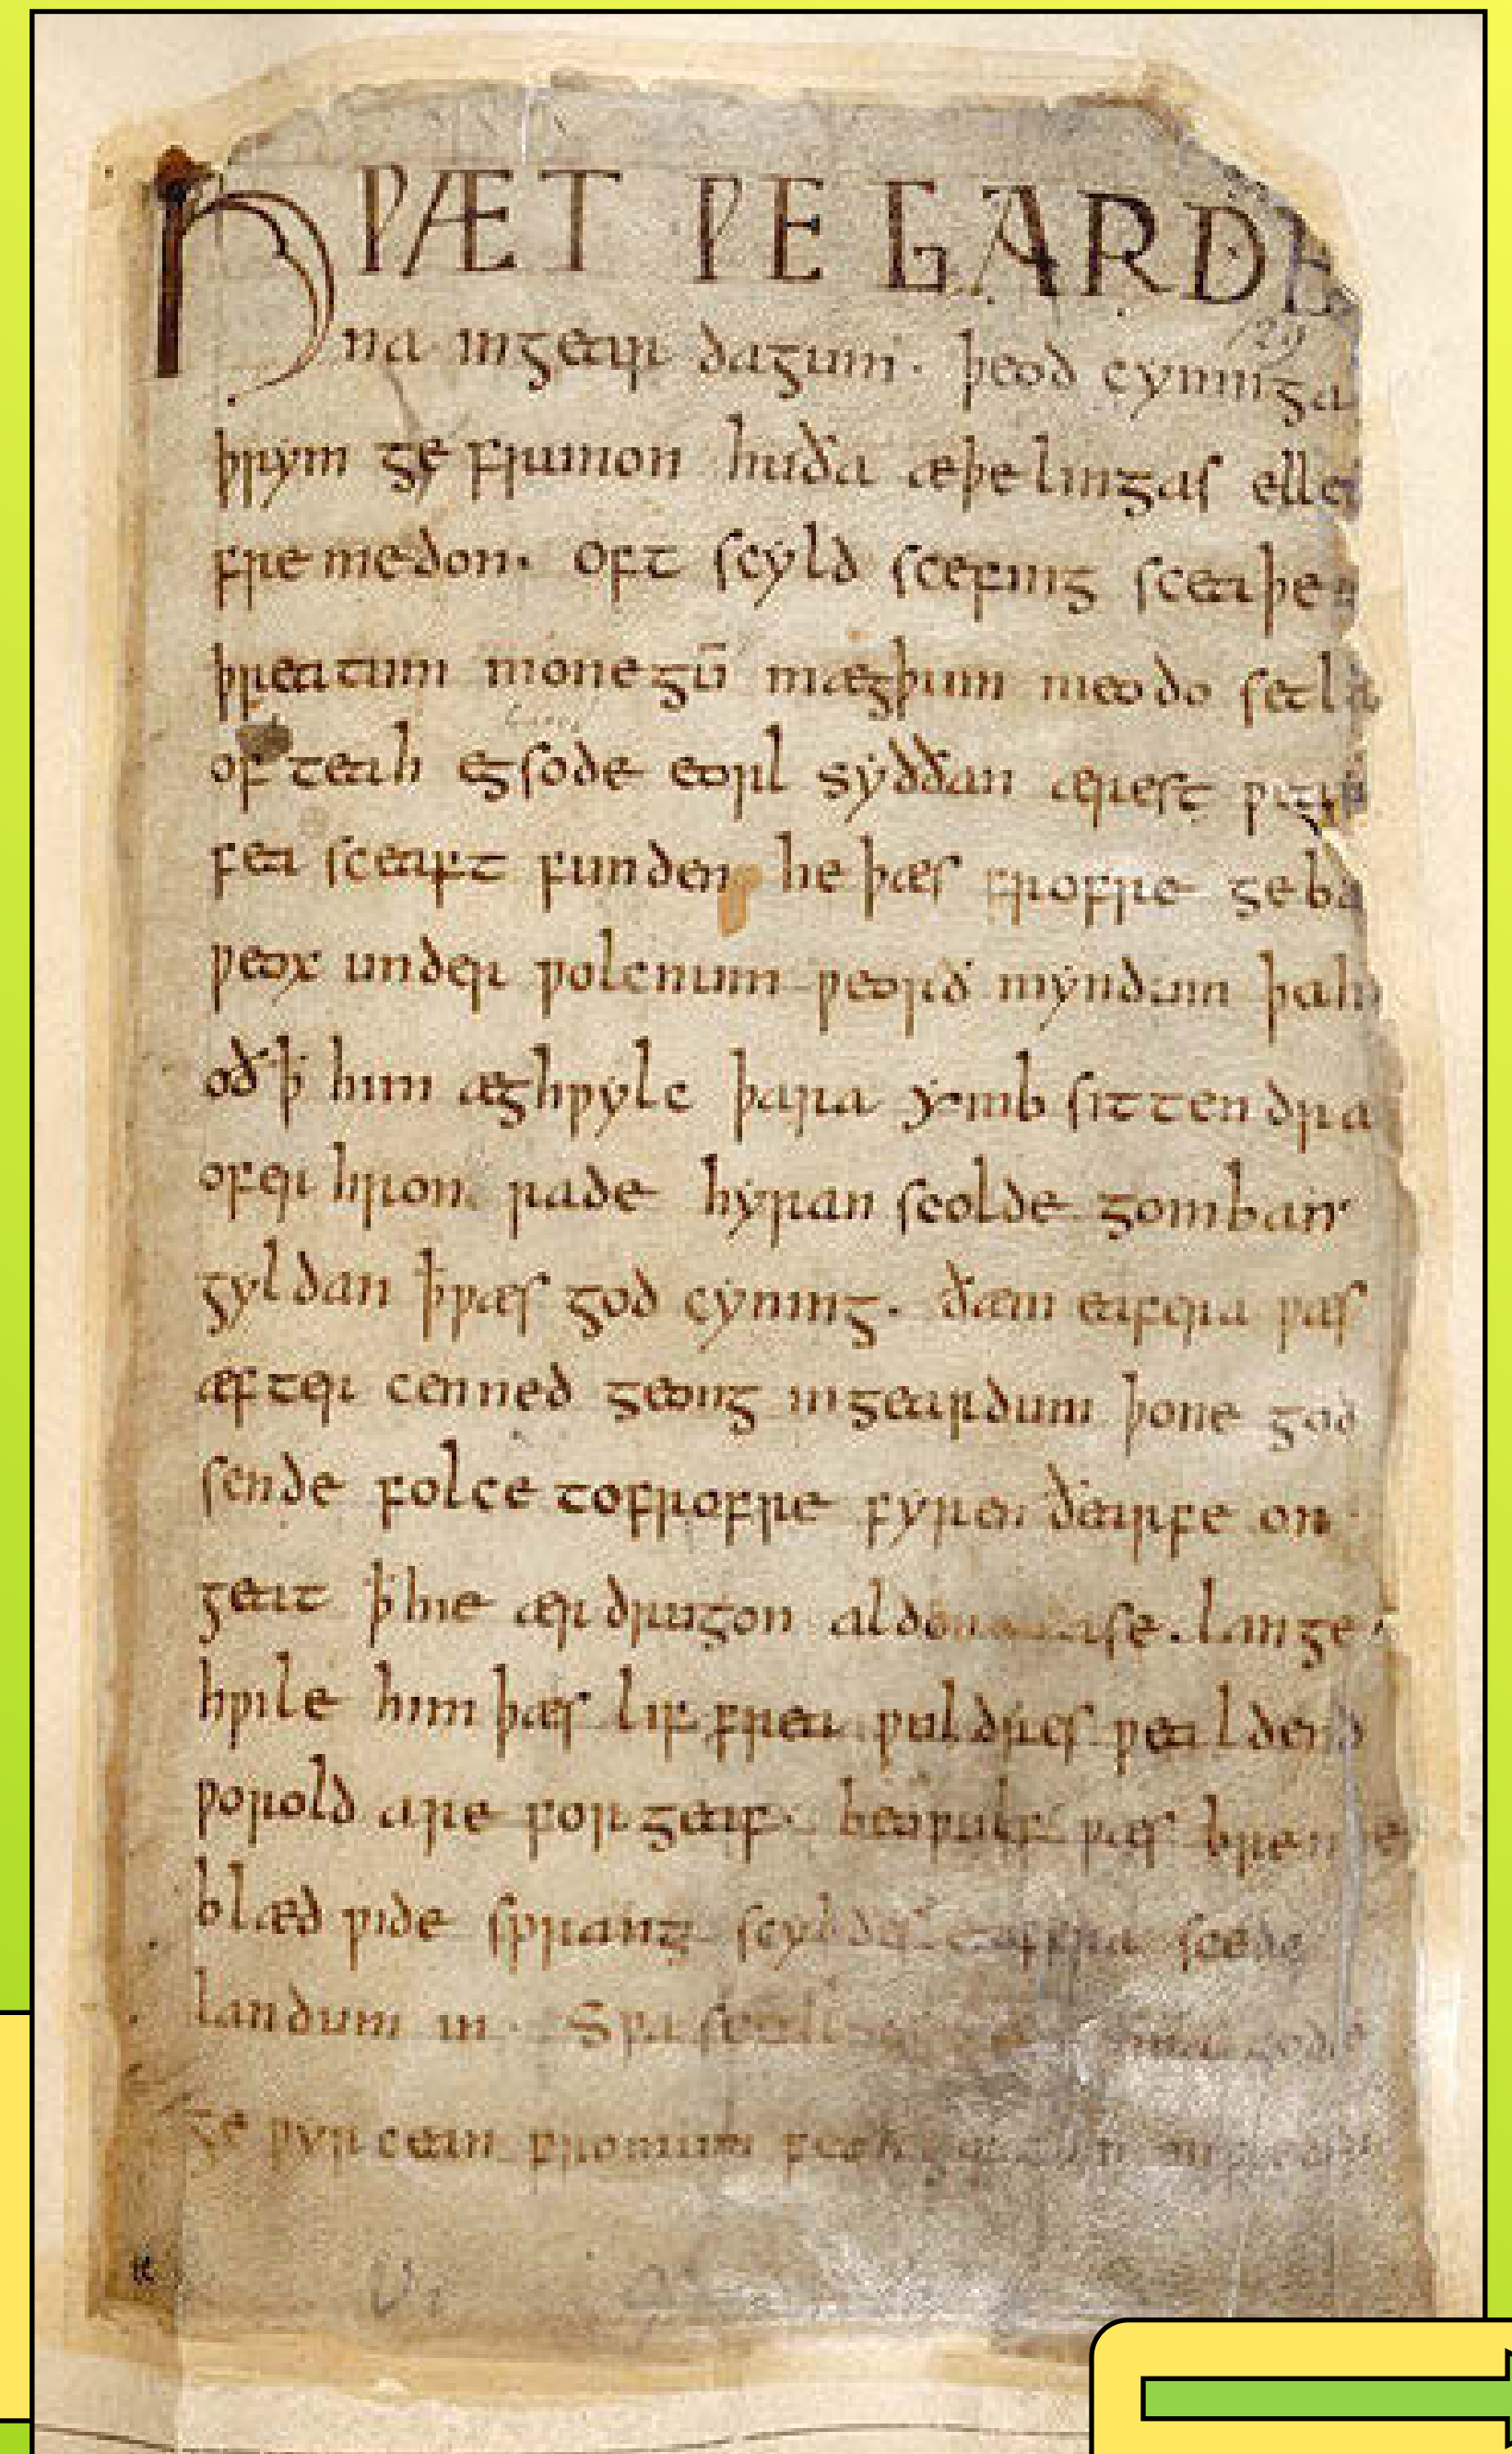 HǷÆT ǷE GARDE
na ingear dagum. þeod cyninga
þrym ge frunon huða æþelingas elle
fremedon. oft scyld scefing sceaþe
þreatum monegū mægþum meodo setla
of teah egsode eorl syððan ærest ƿear
fea sceaft funden he þæs frofre geba
ƿeox under ƿolcnum ƿeorð myndum þah
oðꝥ him æghƿylc þara ymb sittendra
ofer hron rade hyran scolde gomban
gyldan ꝥƿæs god cyning. ðæm eafera ƿæs
æfter cenned geong ingeardum þone god
sende folce tofrofre fyren ðearfe on
geat ꝥhie ær drugon aldor ase. lange
hƿile him þæs lif frea ƿuldres ƿealdend
ƿorold are forgeaf. beoƿulf ƿæs breme
blæd ƿide sprang scyldes eafera scede
landum in. Sƿa sceal
ge ƿyrcean fromum feoh